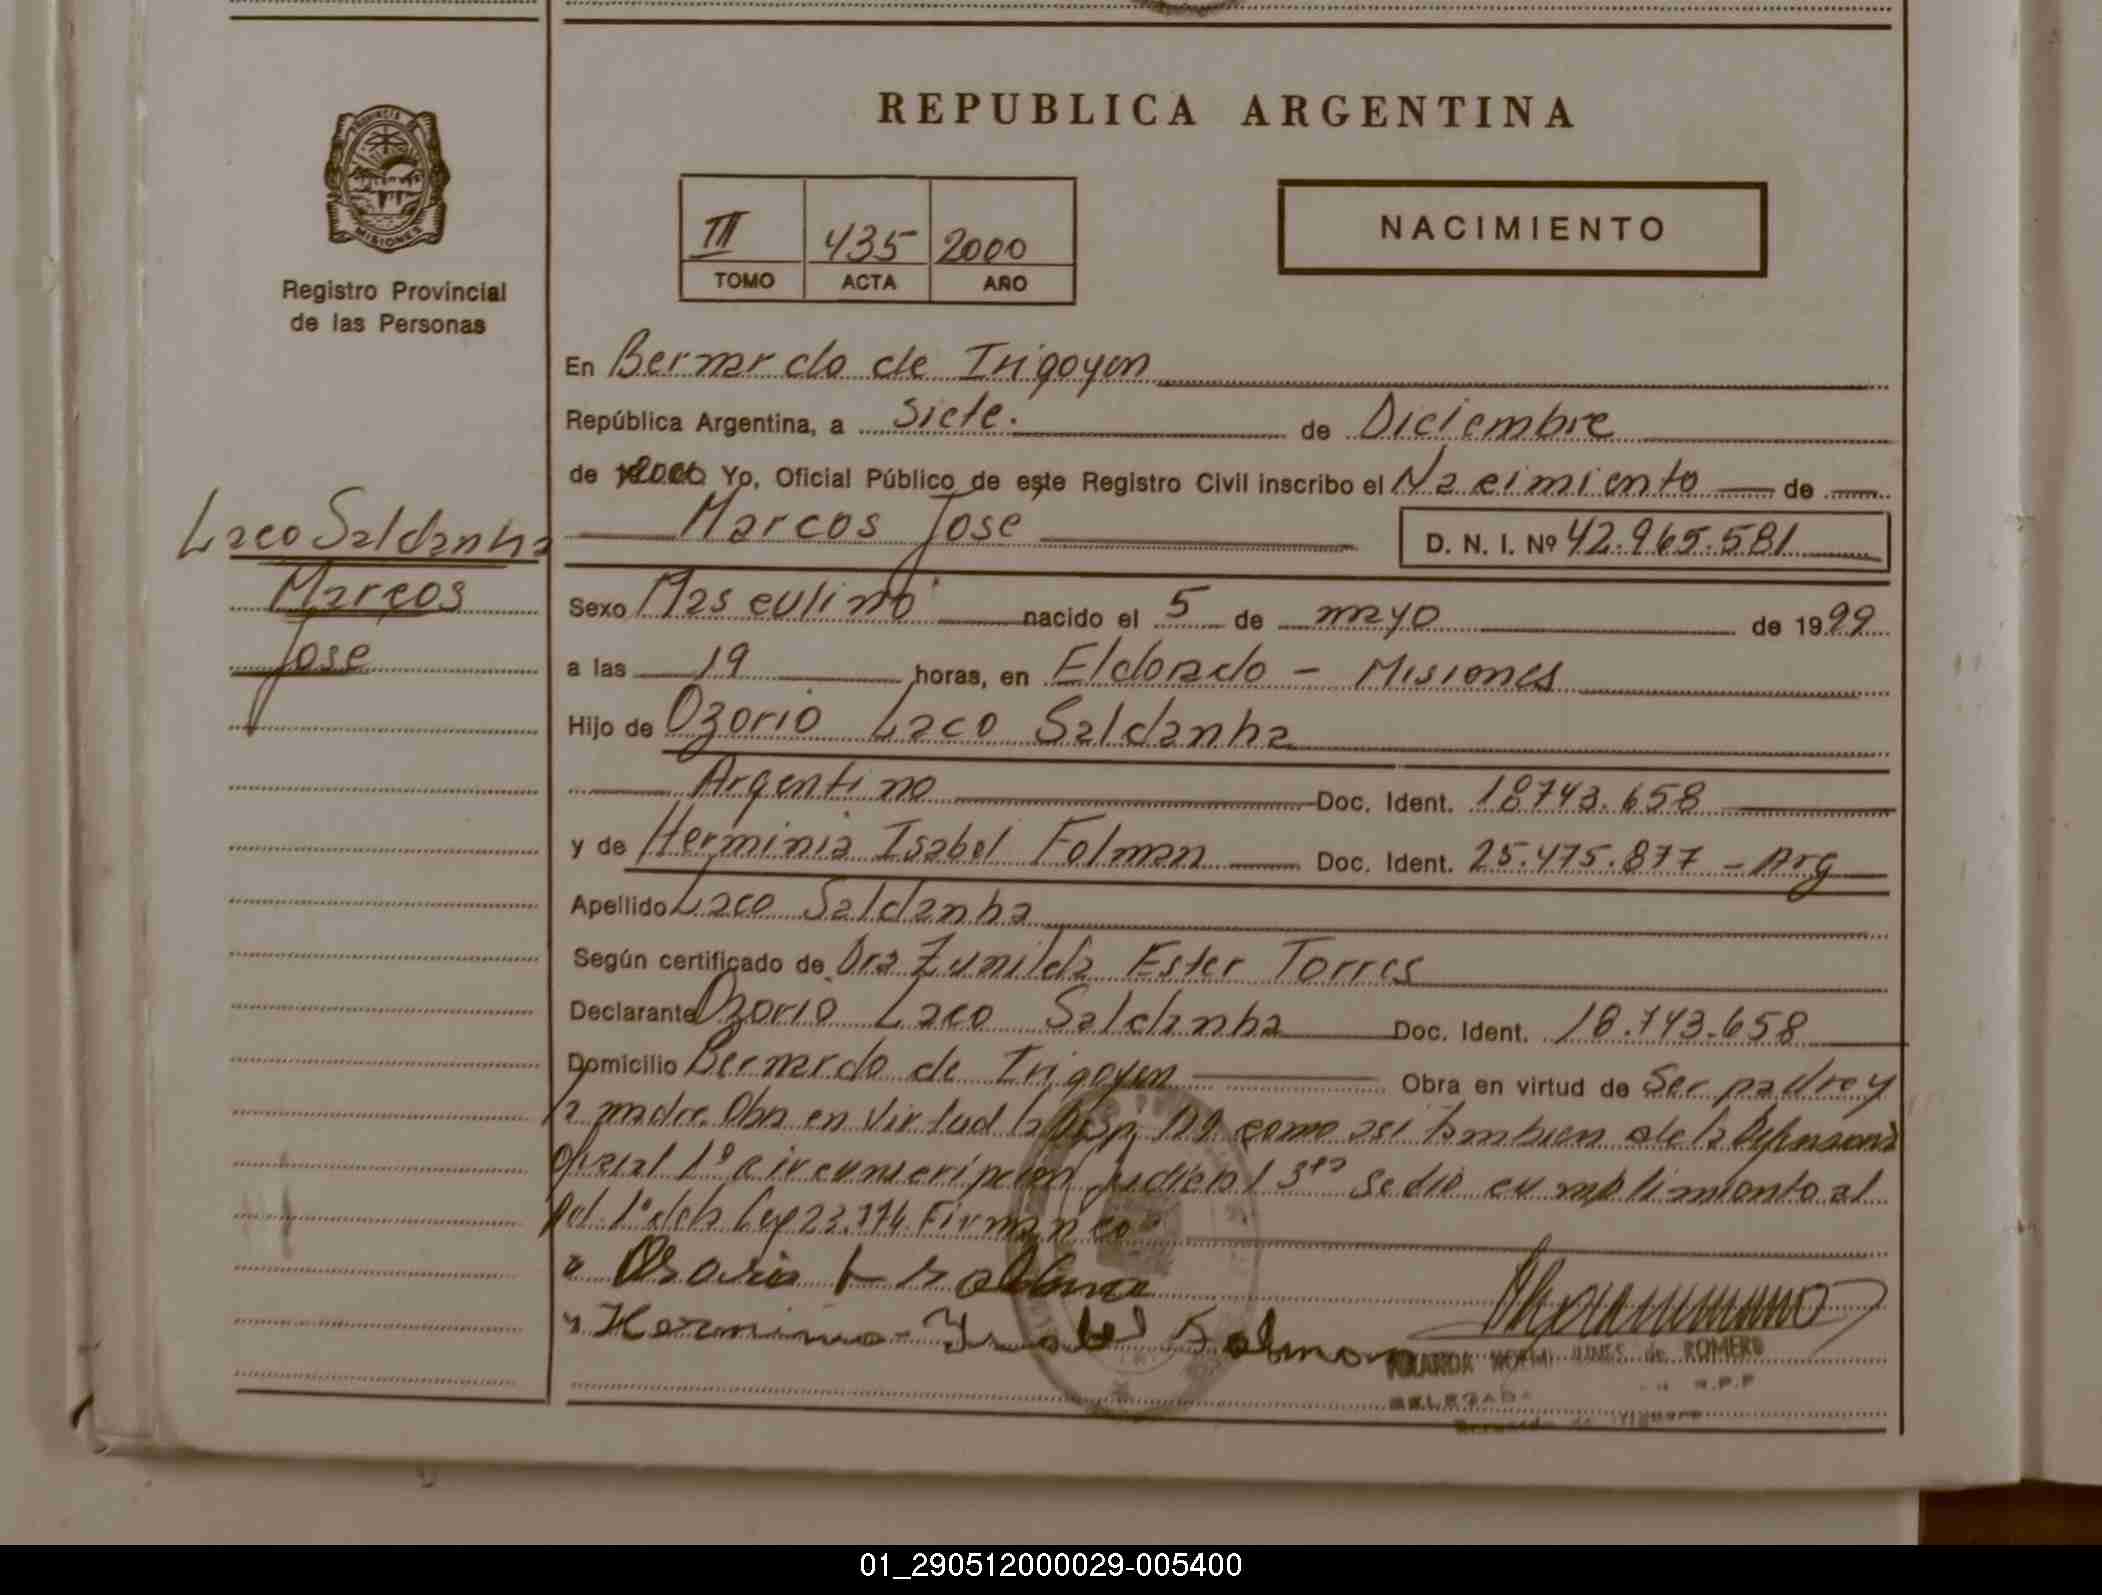 REPUBLICA ARGENTINA
PROVINCIA DE
MISIONES
Registro Provincial
de las Personas
III 435 2000
TOMO ACTA AÑO
NACIMIENTO
En Bernardo de Irigoyen
República Argentina, a siete. de Diciembre
de 2000 Yo, Oficial Público de este Registro Civil inscribo el Nacimiento de
Marcos Jose D. N. I. Nº 42.965.581
Laco Saldanha
Marcos
Jose
Sexo Masculino nacido el 5 de mayo de 1999
a las 19 horas, en Eldorado - Misiones
Hijo de Ozorio Laco Saldanha
Argentino Doc. Ident. 18743.658
y de Herminia Isabel Folman Doc. Ident. 25.475.877 - Arg
Apellido Laco Saldanha
Según certificado de Dra Zunilda Ester Torres
Declarante Ozorio Laco Saldanha Doc. Ident. 18.743.658
Domicilio Bernardo de Irigoyen Obra en virtud de Ser padre y
la madre. Obra en virtud la Disp. como asi tambien de la Defensoria
Oficial 1º circunscripcion judicial se dio cumplimiento al
1º de la Ley 23.
Herminia Isabel Folman
de ROMERO
DELEGADA R.P.P
01_290512000029-005400